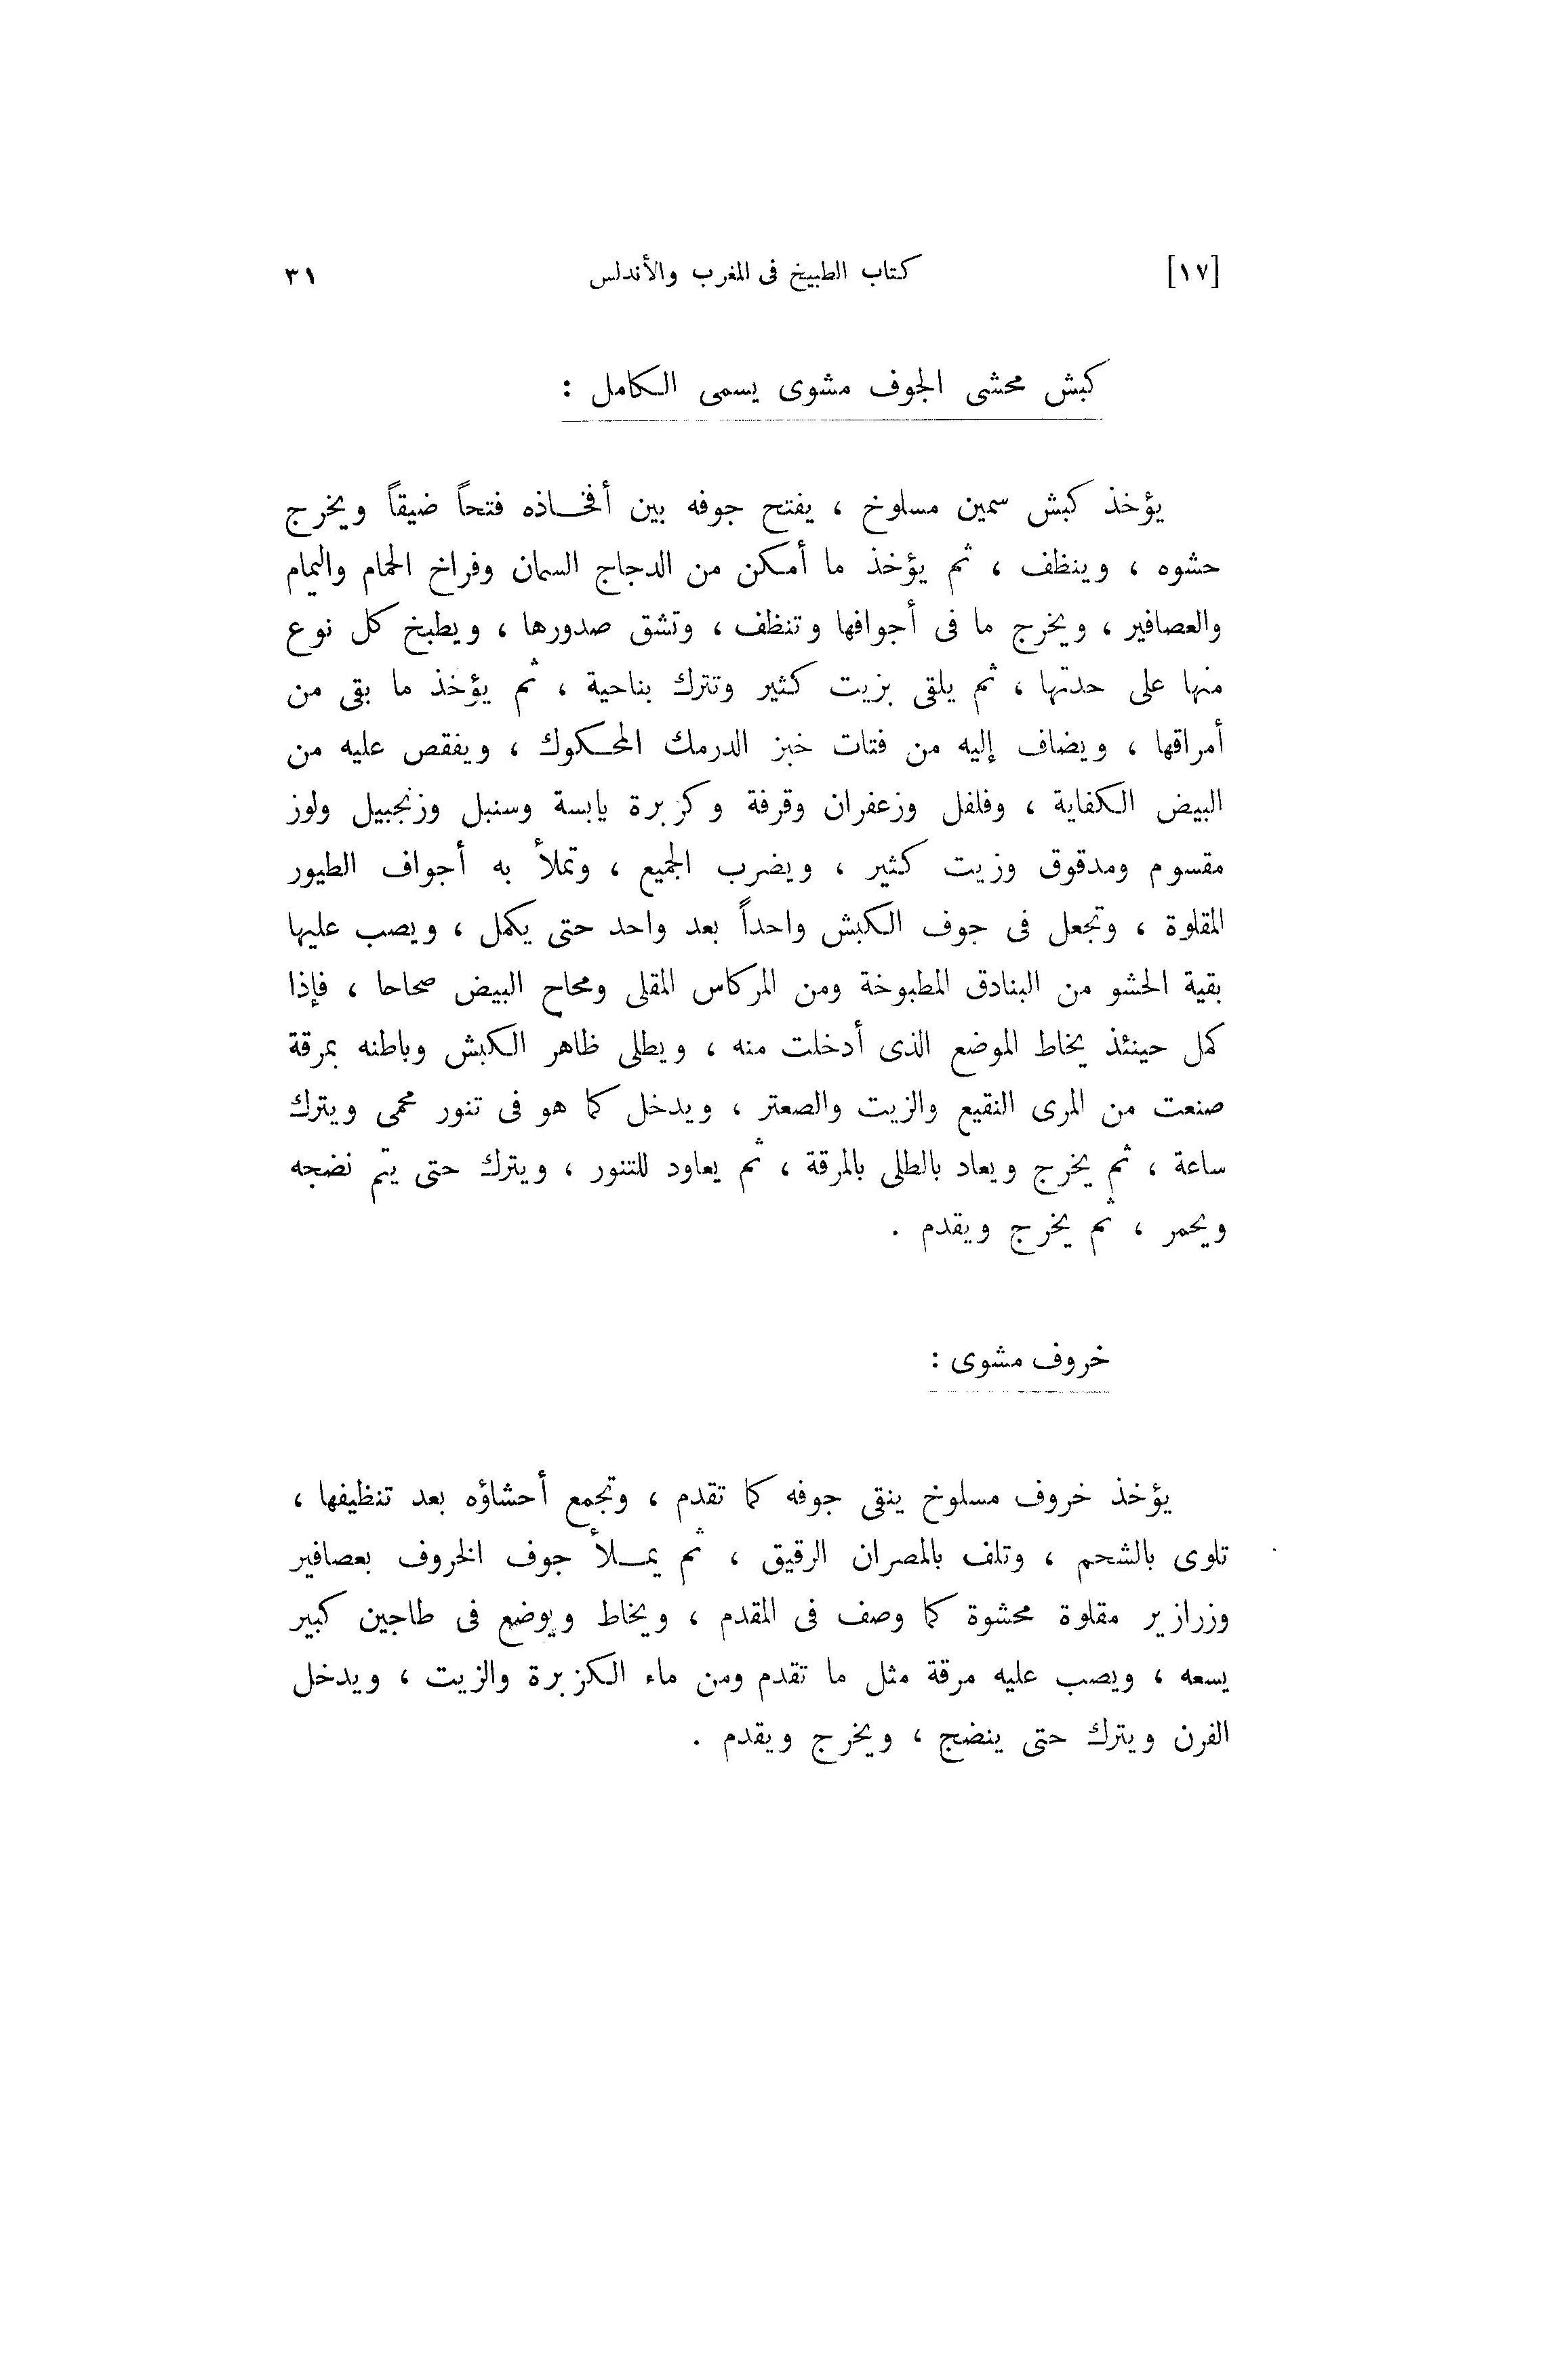 [١٧] كتاب الطبيخ فى المغرب والأندلس ٣١
كبش محشى الجوف مشوى يسمى الكامل :
يؤخذ كبش سمين مسلوخ ، يفتح جوفه بين أفخاذه فتحاً ضيقاً ويخرج
حشوه ، وينظف ، ثم يؤخذ ما أمكن من الدجاج السمان وفراخ الحمام واليمام
والعصافير ، ويخرج ما فى أجوافها وتنظف ، وتشق صدورها ، ويطبخ كل نوع
منها على حدتها ، ثم يلقى بزيت كثير وتترك بناحية ، ثم يؤخذ ما بقى من
أمراقها ، ويضاف إليه من فتات خبز الدرمك المحكوك ، ويفقص عليه من
البيض الكفاية ، وفلفل وزعفران وقرفة وكزبرة يابسة وسنبل وزنجبيل ولوز
مقسوم ومدقوق وزيت كثير ، ويضرب الجميع ، وتملأ به أجواف الطيور
المقلوة ، وتجعل فى جوف الكبش واحداً بعد واحد حتى يكمل ، ويصب عليها
بقية الحشو من البنادق المطبوخة ومن المركاس المقلى ومحاح البيض صحاحا ، فإذا
كمل حينئذ يخاط الموضع الذى أدخلت منه ، ويطلى ظاهر الكبش وباطنه بمرقة
صنعت من المرى النقيع والزيت والصعتر ، ويدخل كما هو فى تنور محمى ويترك
ساعة ، ثم يخرج ويعاد بالطلى بالمرقة ، ثم يعاود للتنور ، ويترك حتى يتم نضجه
ويحمر ، ثم يخرج ويقدم .
خروف مشوى :
يؤخذ خروف مسلوخ ينقى جوفه كما تقدم ، وتجمع أحشاؤه بعد تنظيفها ،
تلوى بالشحم ، وتلف بالمصران الرقيق ، ثم يملأ جوف الخروف بعصافير
وزرازير مقلوة محشوة كما وصف فى المقدم ، ويخاط ويوضع فى طاجين كبير
يسعه ، ويصب عليه مرقة مثل ما تقدم ومن ماء الكزبرة والزيت ، ويدخل
الفرن ويترك حتى ينضج ، ويخرج ويقدم .